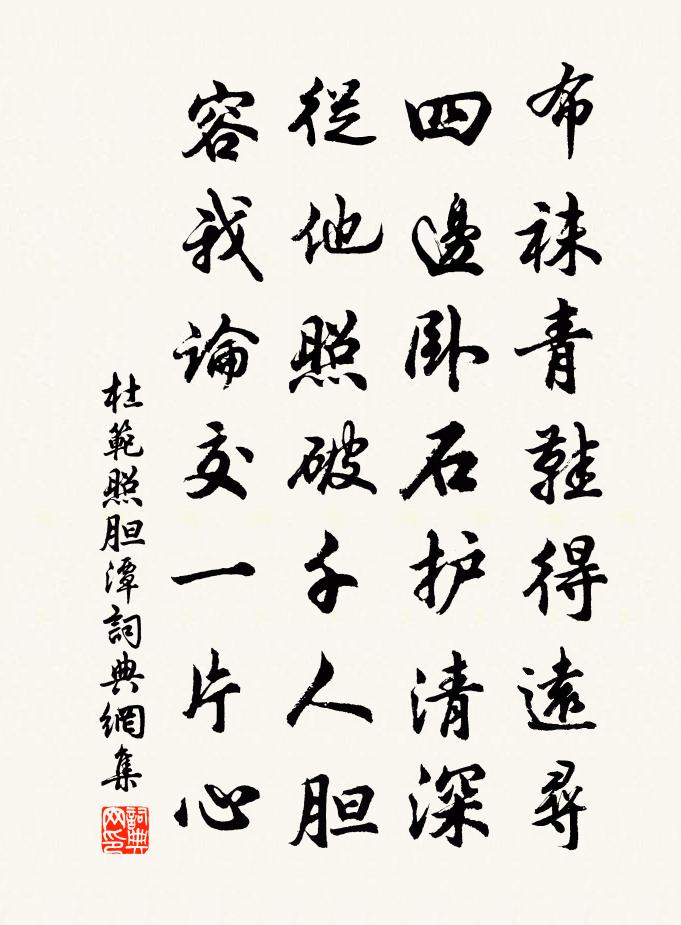 布袜青鞋得遠尋
四邊卧石护清深
從他照破千人胆
容我論交一片心
杜範照胆潭詞典網集
詞典网印